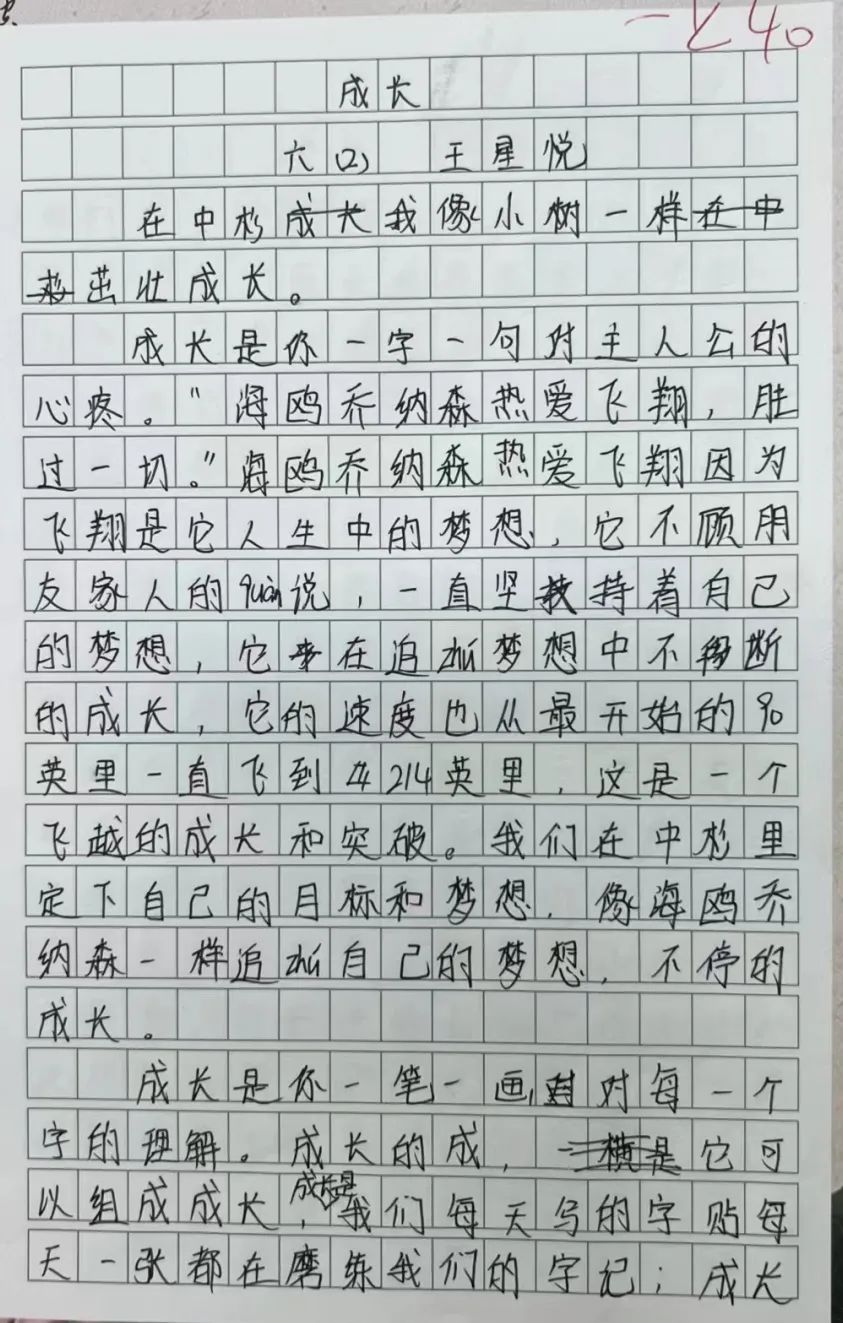 一 40
成长
六(2) 王星悦
在中杉成长我像小树一样在中
杉茁壮成长。
成长是你一字一句对主人公的
心疼。"海鸥乔纳森热爱飞翔,胜
过一切。"海鸥乔纳森热爱飞翔因为
飞翔是它人生中的梦想,它不顾朋
友家人的quàn说,一直坚持着自己
的梦想,它在追zhú梦想中不断
的成长,它的速度也从最开始的90
英里一直飞到214英里,这是一个
飞越的成长和突破。我们在中杉里
定下自己的目标和梦想,像海鸥乔
纳森一样追zhú自己的梦想,不停的
成长。
成长是你一笔一画对每一个
字的理解。成长的成,是它可
以组成成长,成长是我们每天写的字贴每
天一张都在磨练我们的字记;成长